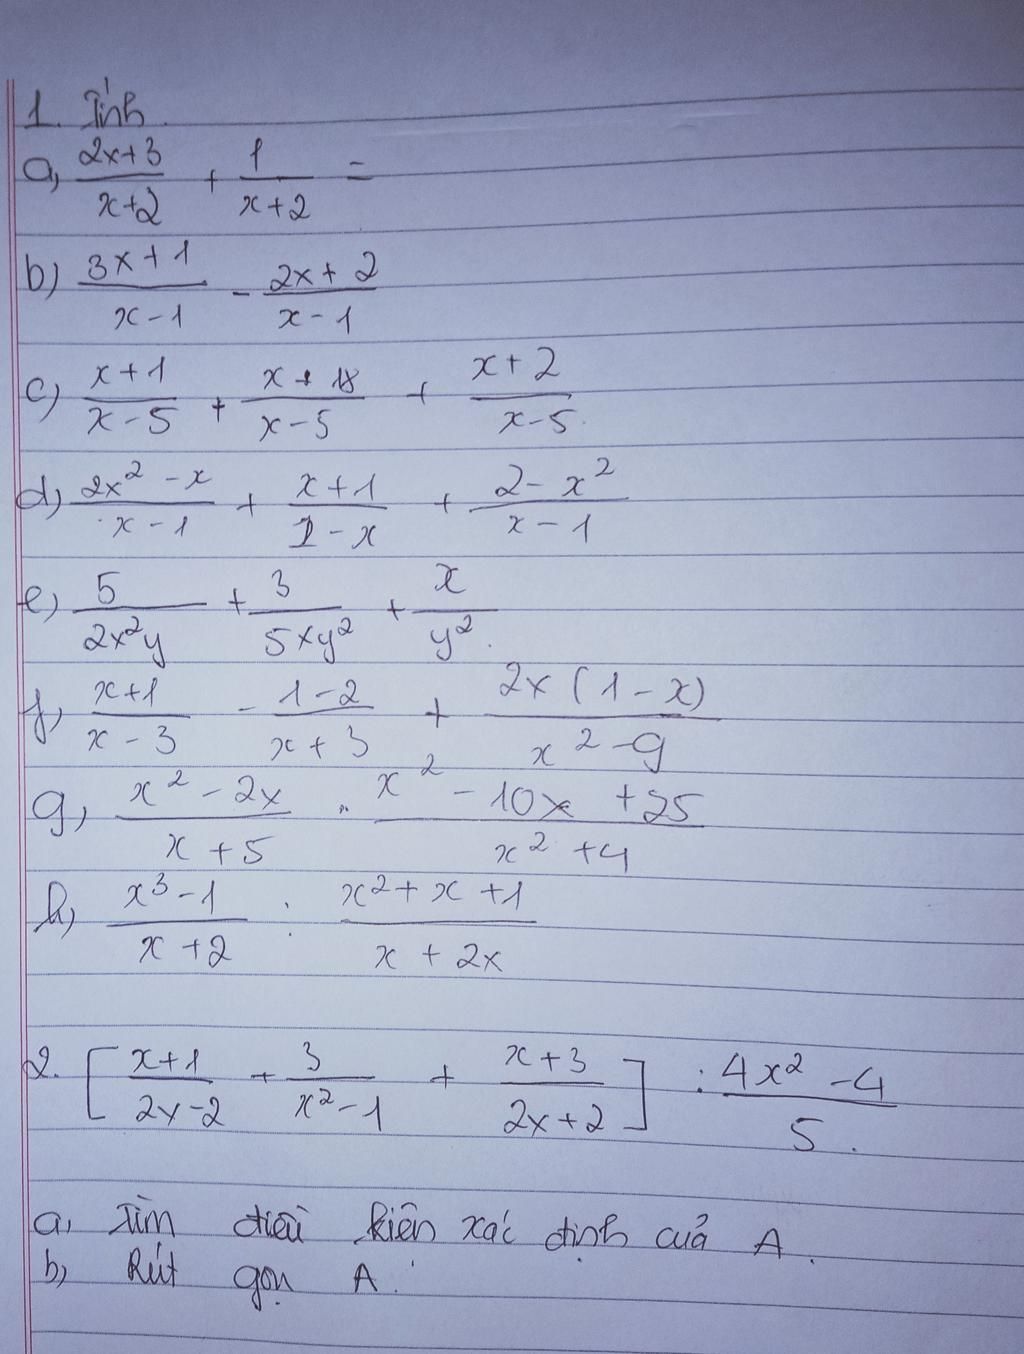 1. Tính.
a, (2x+3)/(x+2) + 1/(x+2) =
b) (3x+1)/(x-1) - (2x+2)/(x-1)
c) (x+1)/(x-5) + (x+18)/(x-5) + (x+2)/(x-5)
d) (2x² -x)/(x-1) + (x+1)/(1-x) + (2-x²)/(x-1)
e) 5/(2x²y) + 3/(5xy²) + x/y².
f, (x+1)/(x-3) - (1-2)/(x+3) + (2x(1-x))/(x²-9)
g, (x²-2x)/(x+5) : (x²-10x+25)/(x²+4)
h, (x³-1)/(x+2) : (x²+x+1)/(x+2x)
2. [(x+1)/(2x-2) + 3/(x²-1) + (x+3)/(2x+2)] : (4x²-4)/5.
a, Tìm điều kiện xác định của A.
b, Rút gọn A.